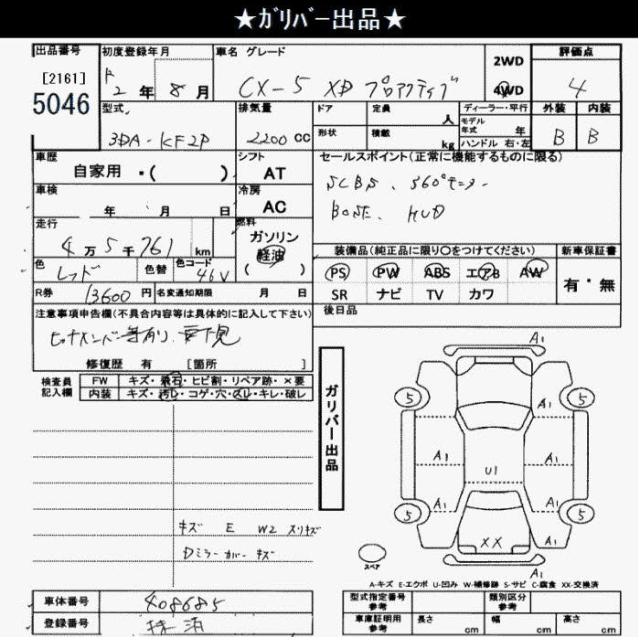 ★ｶﾞﾘﾊﾞｰ出品★
出品番号
[2161]
5046
初度登録年月
R 2 年 8 月
車名 グレード
CX-5 XD プロアクティブ
2WD
4WD
評価点
4
型式
3DA-KF2P
排気量
2200 cc
ドア
定員
人
形状
積載
kg
ディーラー・平行
モデル年式
年
ハンドル 右・左
外装
内装
B
B
車歴
自家用 ・( )
シフト
AT
セールスポイント(正常に機能するものに限る)
SCBS、360°モニター
BOSE、HUD
車検
年 月 日
冷房
AC
走行
4 万 5 千 761 km
燃料
ガソリン
軽油
( )
色
レッド
色替
色コード
46V
装備品(純正品に限り○をつけてください)
新車保証書
PS
PW
ABS
エアB
AW
SR
ナビ
TV
カワ
有・無
R券
13600 円
名変通知期限
月 日
注意事項申告欄(不具合内容等は具体的に記入して下さい)
修復歴 有 [箇所 ]
後日品
検査員記入欄
FW
キズ・飛石・ヒビ割・リペア跡・×要
内装
キズ・汚レ・コゲ・穴・スレ・キレ・破レ
キズ E W2 スリキズ
Dミラーカバーキズ
ガリバー出品
A1
5
5
A1
A1
A1
U1
A1
A1
5
5
XX
A1
A1
スペア
A-キズ E-エクボ U-凹み W-補修跡 S-サビ C-腐食 XX-交換済
車体番号
408685
登録番号
抹消
型式指定番号
参考
類別区分
参考
車庫証明用
参考
長さ
cm
幅
cm
高さ
cm